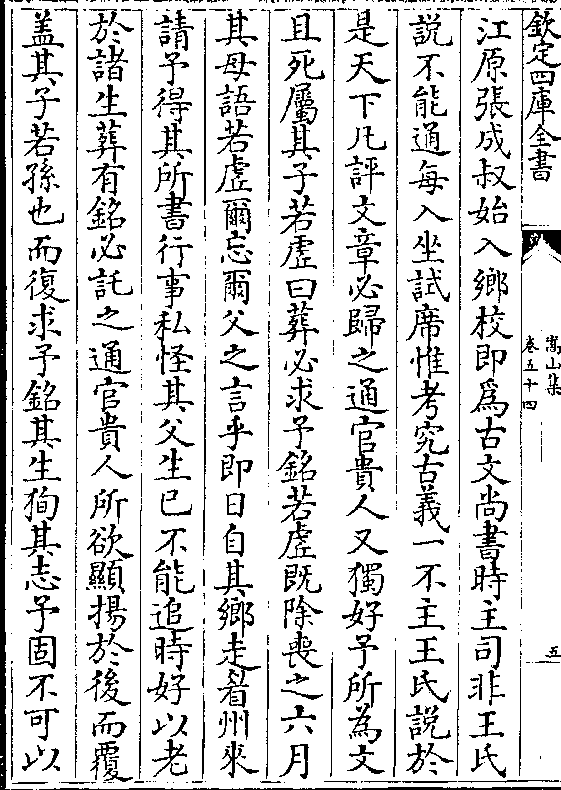 欽定四庫全書
嵩山集
卷五十四
五
江原張成叔始入鄉校即為古文尚書時主司非王氏
說不能通每入坐試席惟考究古義一不主王氏說於
是天下凡評文章必歸之通官貴人又獨好予所為文
且死屬其子若虛曰葬必求予銘若虛既除喪之六月
其母語若虛爾忘爾父之言乎即日自其鄉走眷州來
請予得其所書行事私怪其父生已不能追時好以老
於諸生葬有銘必託之通官貴人所欲顯揚於後而覆
盖其子若孫也而復求予銘其生狥其志予固不可以